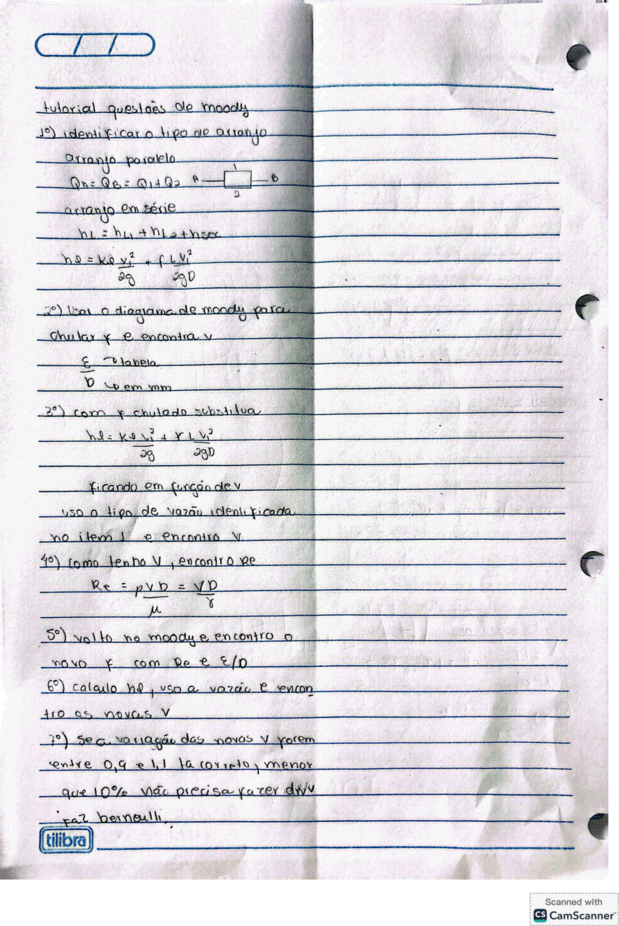 tutorial questões de moody
1º) identificar o tipo de arranjo
arranjo paralelo
QA = QB = Q1 + Q2 A 1 2 B
arranjo em série
hL = hL1 + hL2 + hsec
hl = Kl V1²/2g + f L V1²/2gD
2º) Usar o diagrama de moody para
chutar f e encontra v
ε/D → tabela → em mm
3º) com f chutado substitua
hl = Kl V1²/2g + f L V1²/2gD
ficando em função de v
uso o tipo de vazão identificada
no item 1 e encontro V
4º) como tenho V, encontro Re
Re = ρVD/μ = VD/γ
5º) volto no moody e encontro o
novo f com Re e ε/D
6º) calculo hl, uso a vazão e encon
tro as novas V
7º) se a variação das novas V forem
entre 0,9 e 1,1 tá correto, menor
que 10% não precisa fazer
faz bernoulli.
tilibra
Scanned with
CS CamScanner